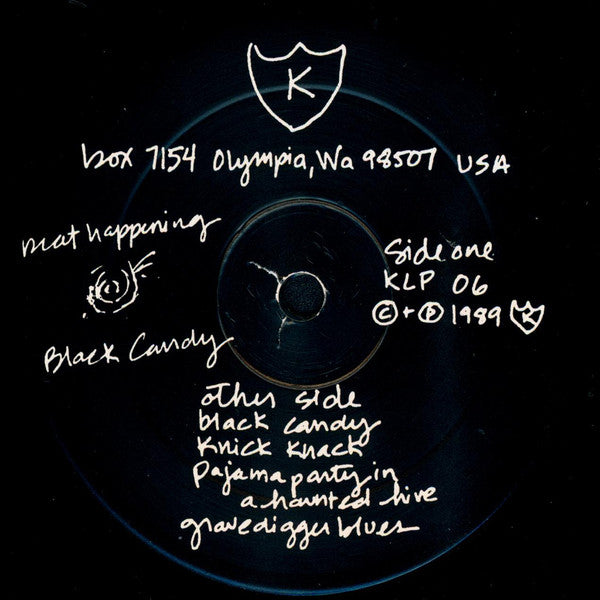 K
box 7154 Olympia, Wa 98507 USA
meat happening
Black Candy
Side one
KLP 06
© + ℗ 1989 K
other side
black candy
knick knack
pajama party in
a haunted hive
gravedigger blues